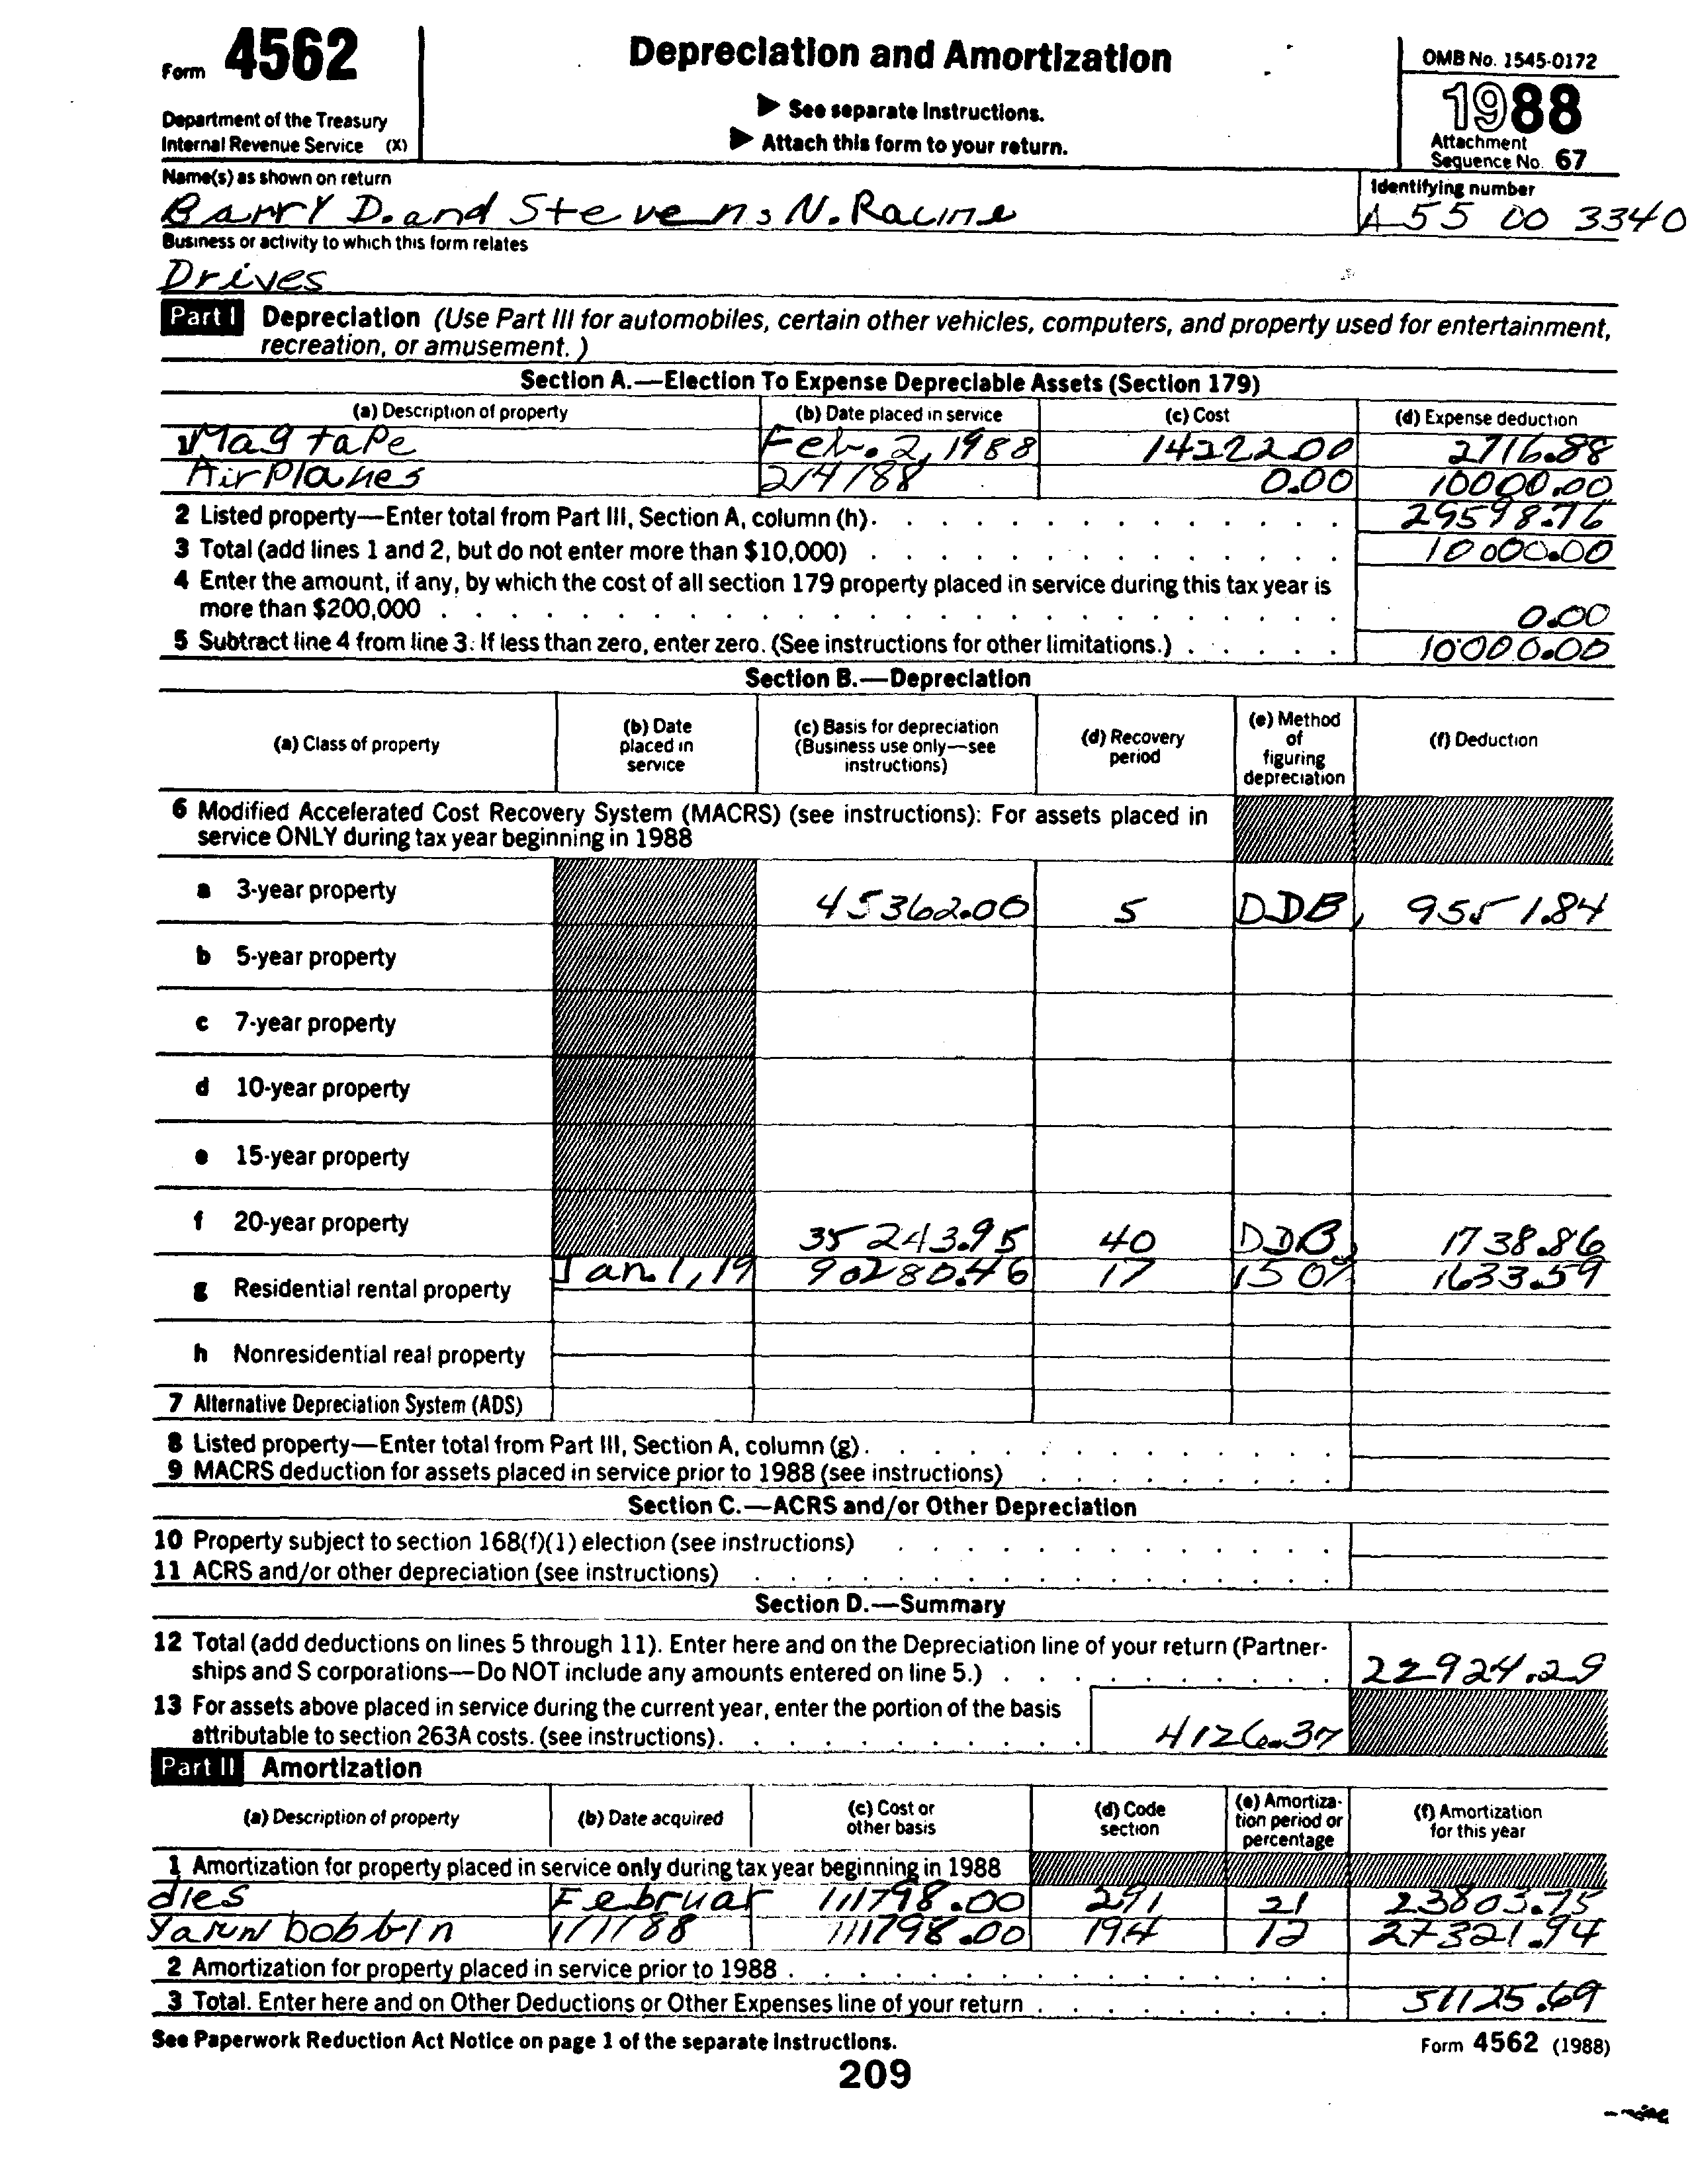 Form 4562
Department of the Treasury
Internal Revenue Service (X)
Depreciation and Amortization
▶ See separate Instructions.
▶ Attach this form to your return.
OMB No. 1545-0172
1988
Attachment
Sequence No. 67
Name(s) as shown on return
Barry D. and Stevens N. Racine
Identifying number
A 55 00 3340
Business or activity to which this form relates
Drives
Part I Depreciation (Use Part III for automobiles, certain other vehicles, computers, and property used for entertainment,
recreation, or amusement.)
Section A.—Election To Expense Depreciable Assets (Section 179)
(a) Description of property (b) Date placed in service (c) Cost (d) Expense deduction
Mag tape Feb. 2, 1988 14222.00 2716.88
Air Planes 2/4/88 0.00 10000.00
2 Listed property—Enter total from Part III, Section A, column (h). 29598.76
3 Total (add lines 1 and 2, but do not enter more than $10,000) 10000.00
4 Enter the amount, if any, by which the cost of all section 179 property placed in service during this tax year is
more than $200,000 0.00
5 Subtract line 4 from line 3. If less than zero, enter zero. (See instructions for other limitations.) 10000.00
Section B.—Depreciation
(a) Class of property (b) Date placed in service (c) Basis for depreciation (Business use only—see instructions) (d) Recovery period (e) Method of figuring depreciation (f) Deduction
6 Modified Accelerated Cost Recovery System (MACRS) (see instructions): For assets placed in
service ONLY during tax year beginning in 1988
a 3-year property 45362.00 5 DDB, 9551.84
b 5-year property
c 7-year property
d 10-year property
e 15-year property
f 20-year property 35243.95 40 DDB, 1738.86
Jan. 1, 19 90280.46 17 150% 1633.59
g Residential rental property
h Nonresidential real property
7 Alternative Depreciation System (ADS)
8 Listed property—Enter total from Part III, Section A, column (g).
9 MACRS deduction for assets placed in service prior to 1988 (see instructions)
Section C.—ACRS and/or Other Depreciation
10 Property subject to section 168(f)(1) election (see instructions)
11 ACRS and/or other depreciation (see instructions)
Section D.—Summary
12 Total (add deductions on lines 5 through 11). Enter here and on the Depreciation line of your return (Partner-
ships and S corporations—Do NOT include any amounts entered on line 5.) 22924.29
13 For assets above placed in service during the current year, enter the portion of the basis
attributable to section 263A costs. (see instructions). 4126.37
Part II Amortization
(a) Description of property (b) Date acquired (c) Cost or other basis (d) Code section (e) Amortiza-tion period or percentage (f) Amortization for this year
1 Amortization for property placed in service only during tax year beginning in 1988
dies Februar 111798.00 291 21 23803.75
Yarn bobbin 1/1/88 111798.00 194 12 27321.94
2 Amortization for property placed in service prior to 1988
3 Total. Enter here and on Other Deductions or Other Expenses line of your return 51125.69
See Paperwork Reduction Act Notice on page 1 of the separate Instructions.
Form 4562 (1988)
209